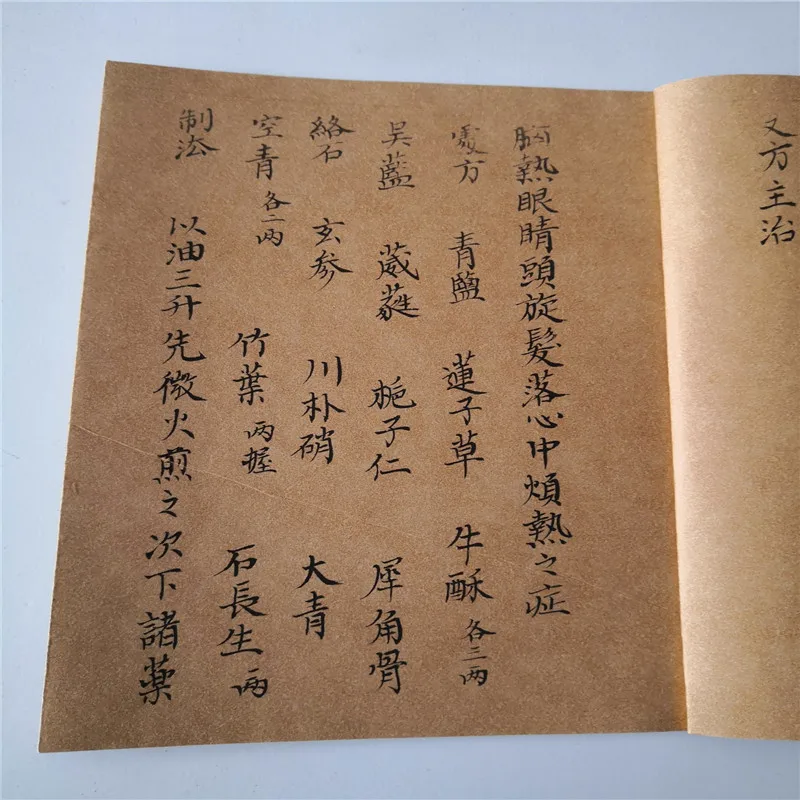 又方主治
胸熱眼睛頭旋髮落心中煩熱之症
處方 青鹽 蓮子草 牛酥 各三両
吴藍 葳蕤 梔子仁 犀角骨
絡石 玄参 川朴硝 大青
空青 各二両 竹葉 両握 石長生 一両
制法 以油三升先微火煎之次下諸藥